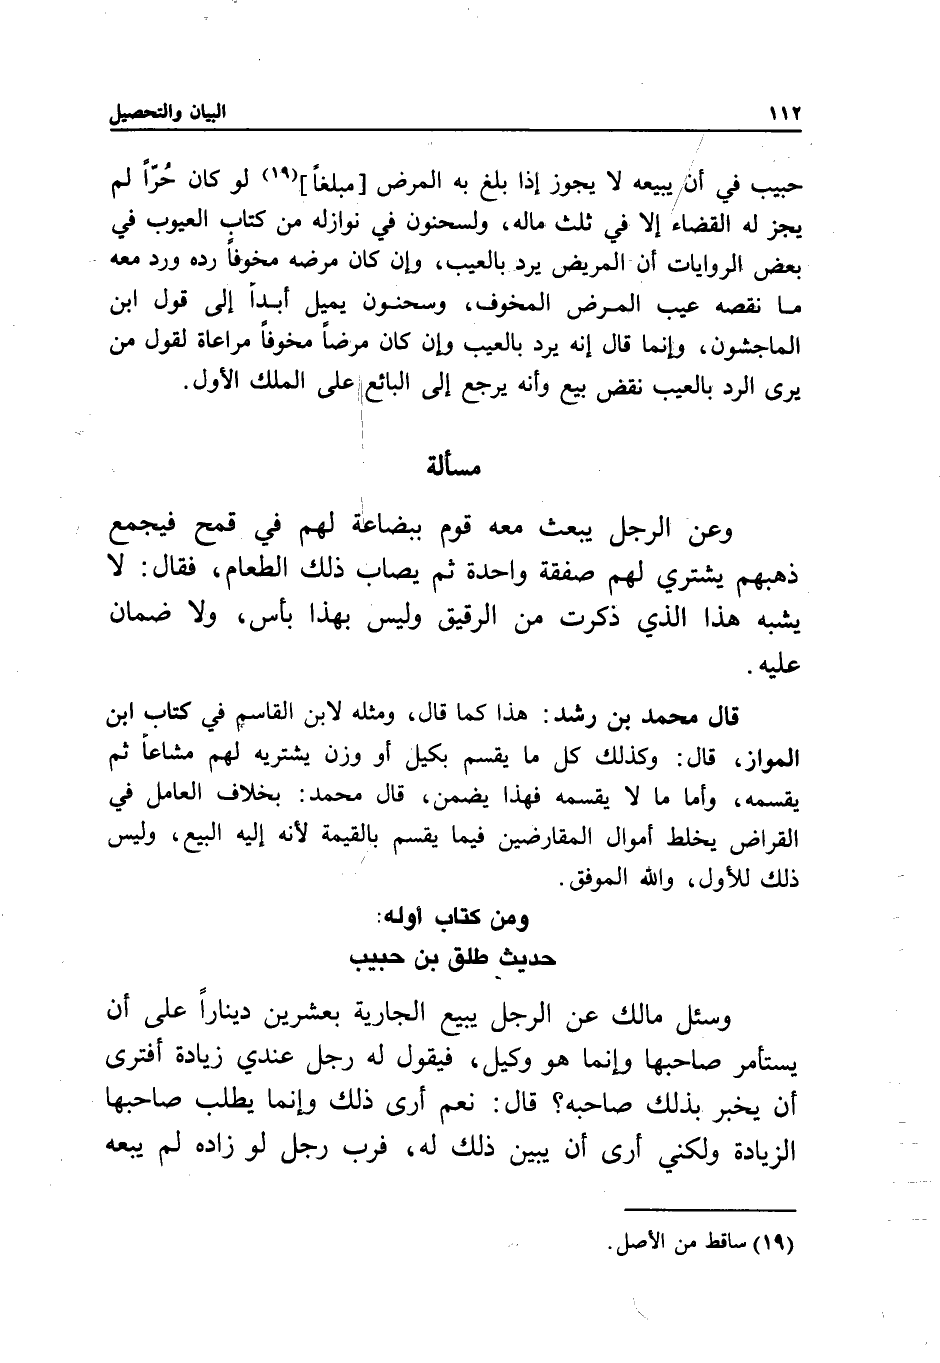 ١١٢ البيان والتحصيل
حبيب في أن يبيعه لا يجوز إذا بلغ به المرض [مبلغاً](١٩) لو كان حُرّاً لم
يجز له القضاء إلا في ثلث ماله، ولسحنون في نوازله من كتاب العيوب في
بعض الروايات أن المريض يرد بالعيب، وإن كان مرضه مخوفاً رده ورد معه
ما نقصه عيب المرض المخوف، وسحنون يميل أبداً إلى قول ابن
الماجشون، وإنما قال إنه يرد بالعيب وإن كان مرضاً مخوفاً مراعاة لقول من
يرى الرد بالعيب نقض بيع وأنه يرجع إلى البائع على الملك الأول.
مسألة
وعن الرجل يبعث معه قوم ببضاعة لهم في قمح فيجمع
ذهبهم يشتري لهم صفقة واحدة ثم يصاب ذلك الطعام، فقال: لا
يشبه هذا الذي ذكرت من الرقيق وليس بهذا بأس، ولا ضمان
عليه.
قال محمد بن رشد: هذا كما قال، ومثله لابن القاسم في كتاب ابن
المواز، قال: وكذلك كل ما يقسم بكيل أو وزن يشتريه لهم مشاعاً ثم
يقسمه، وأما ما لا يقسمه فهذا يضمن، قال محمد: بخلاف العامل في
القراض يخلط أموال المقارضين فيما يقسم بالقيمة لأنه إليه البيع، وليس
ذلك للأول، والله الموفق.
ومن كتاب أوله:
حديث طلق بن حبيب
وسئل مالك عن الرجل يبيع الجارية بعشرين ديناراً على أن
يستأمر صاحبها وإنما هو وكيل، فيقول له رجل عندي زيادة أفترى
أن يخبر بذلك صاحبه؟ قال: نعم أرى ذلك وإنما يطلب صاحبها
الزيادة ولكني أرى أن يبين ذلك له، فرب رجل لو زاده لم يبعه
(١٩) ساقط من الأصل.